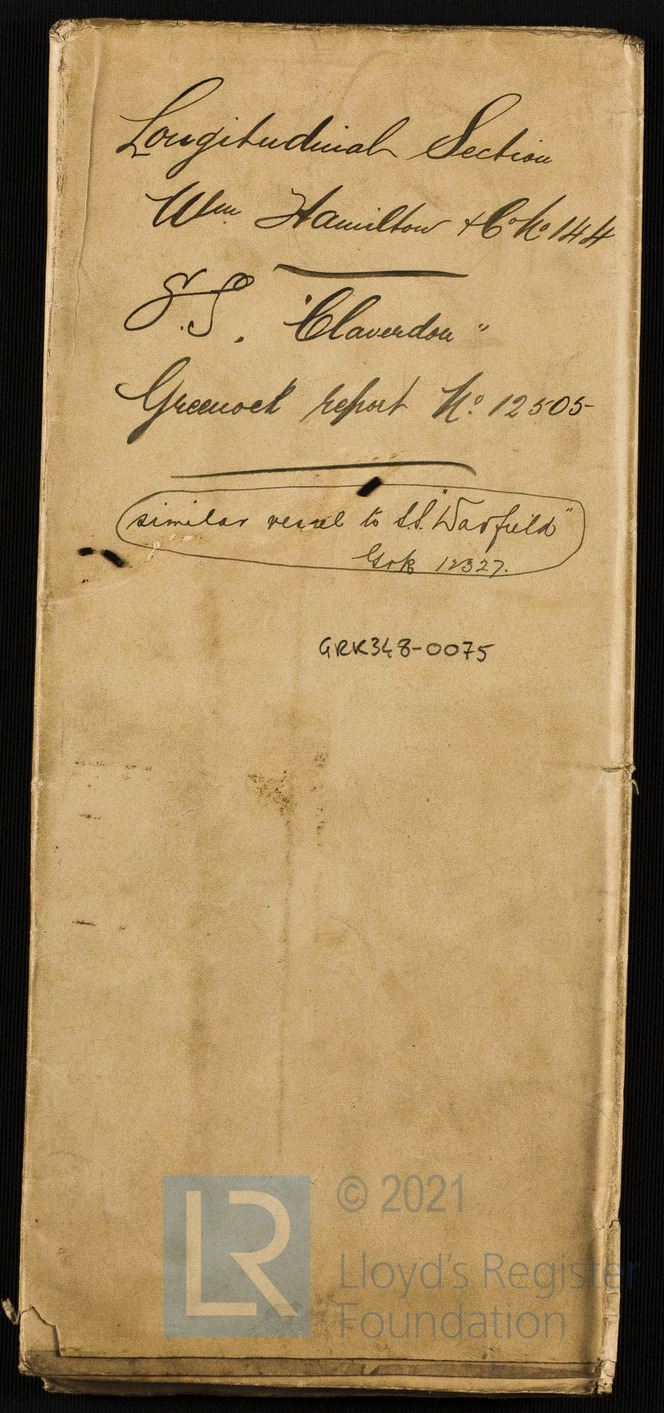 Longitudinal Section
Wm Hamilton & Co No 144
S.S. "Claverdon"
Greenock report No. 12505
similar vessel to S.S. "Warfield"
Grk 12327.
GRK348-0075
LR
© 2021
Lloyd's Register
Foundation